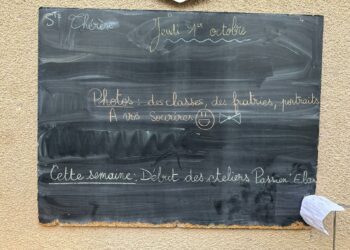 Ste Thérèse
Jeudi 1er octobre
Photos : des classes, des fratries, portraits
À vos sourires
Cette semaine : Début des ateliers Passion' Elan